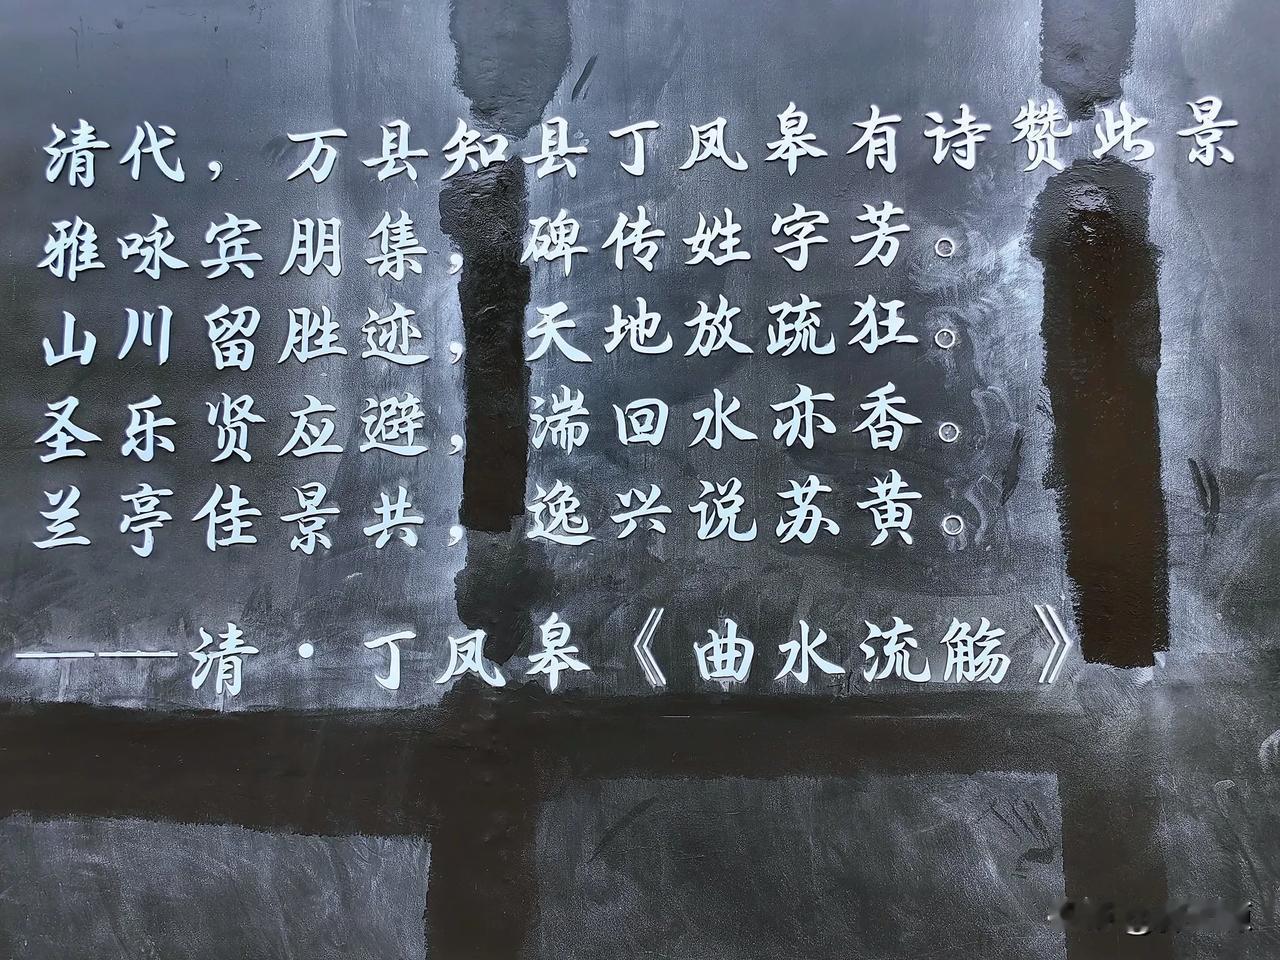 清代，万县知县丁凤皋有诗赞此景
雅咏宾朋集，碑传姓字芳。
山川留胜迹，天地放疏狂。
圣乐贤应避，湍回水亦香。
兰亭佳景共，逸兴说苏黄。
——清·丁凤皋《曲水流觞》